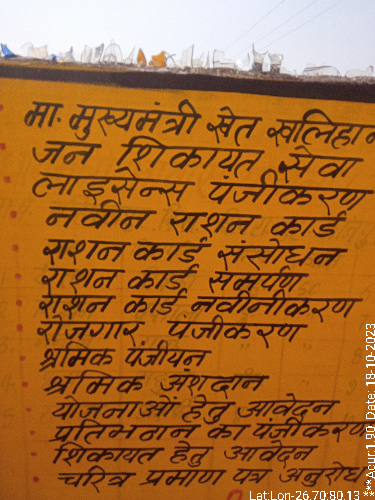 मा. मुख्यमंत्री खेत खलिहान
जन शिकायत सेवा
लाइसेन्स पंजीकरण
नवीन राशन कार्ड
राशन कार्ड संसोधन
राशन कार्ड समर्पण
राशन कार्ड नवीनीकरण
रोजगार पंजीकरण
श्रमिक पंजीयन
श्रमिक अंशदान
योजनाओं हेतु आवेदन
प्रतिभूति का पंजीकरण
शिकायत हेतु आवेदन
चरित्र प्रमाण पत्र अनुरोध
Lat:Lon-26.70:80.13 ***Acur:1.90, Date: 18-10-2023